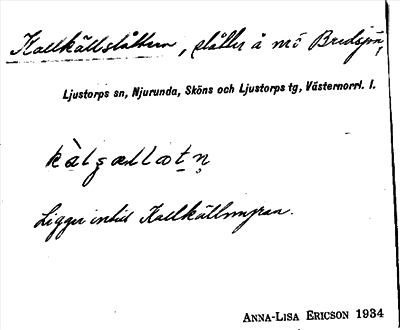 Kallkällslåttern, slåtter å nö Bredsjön,
Ljustorps sn, Njurunda, Sköns och Ljustorps tg, Västernorrl. l.
Ligger intill Kallkällmyran.
ANNA-LISA ERICSON 1934